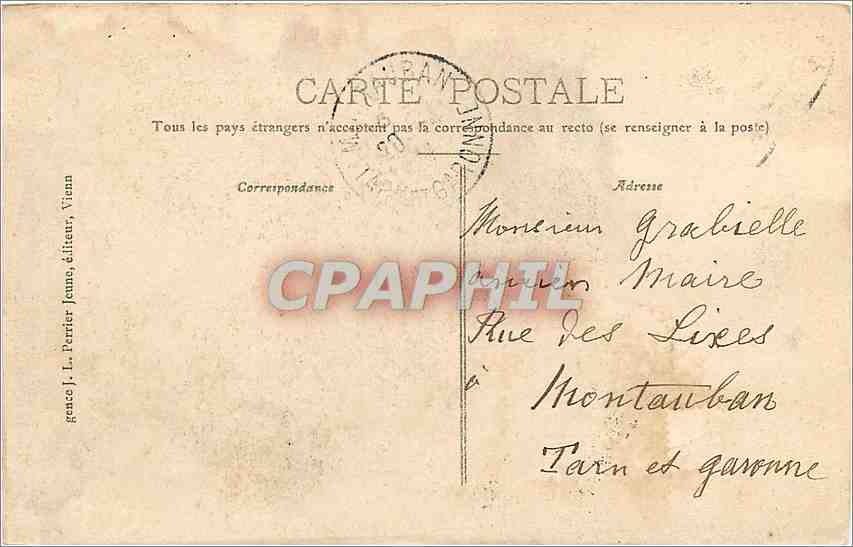 CARTE POSTALE
Tous les pays étrangers n'acceptent pas la correspondance au recto (se renseigner à la poste)
MONTAUBAN
20
TARN-ET-GARONNE
Correspondance
Adresse
gence J. L. Perrier Jeune, éditeur, Vienn
CPAPHIL
Monsieur Grabielle
ancien Maire
Rue des Lices
à Montauban
Tarn et garonne